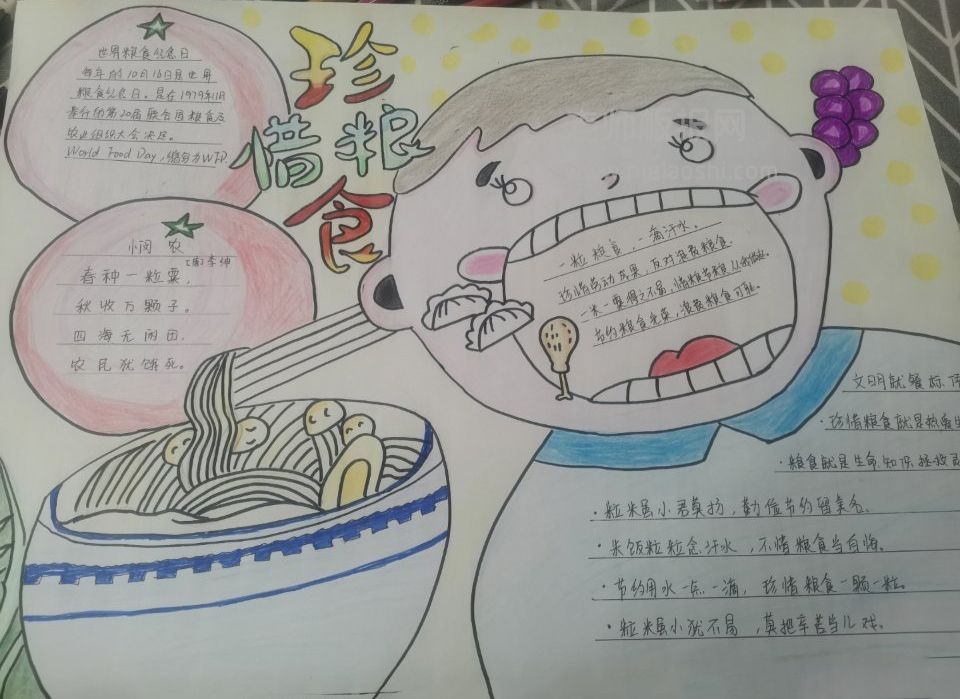 珍惜粮食
世界粮食纪念日
每年的10月16日是世界
粮食纪念日。是在1979年11月
举行的第20届联合国粮食及
农业组织大会决定。
World Food Day，缩写为WFD.
悯农
[唐]李绅
春种一粒粟，
秋收万颗子。
四海无闲田，
农民犹饿死。
一粒粮食，一滴汗水。
珍惜劳动成果，反对浪费粮食。
一米一粟得之不易，惜粮节粮从我做起。
节约粮食光荣，浪费粮食可耻。
文明就餐标
·珍惜粮食就是热爱生
·粮食就是生命，知识拯救
·粒米虽小君莫扔，勤俭节约留美名。
·米饭粒粒念汗水，不惜粮食当自悔。
·节约用水一点一滴，珍惜粮食一颗一粒。
·粒米虽小犹不易，莫把辛苦当儿戏。